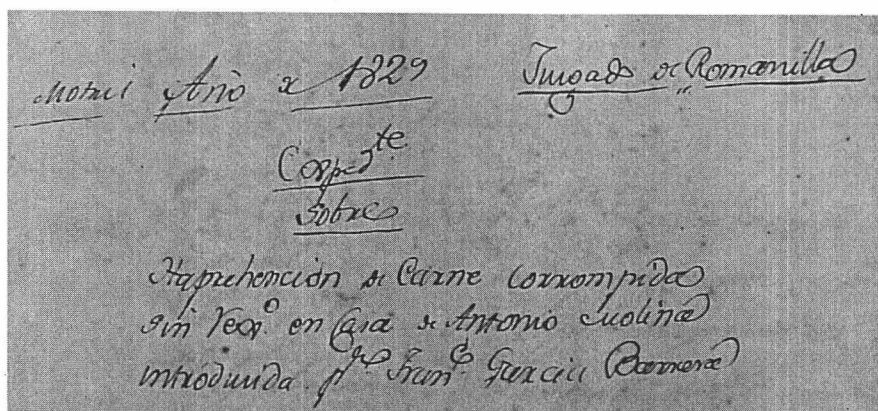 Motril Año de 1829 Juzgado de Romanilla
Expedte
Sobre
Haprehención de Carne Corrompida
sin Rexº en Casa de Antonio Molina
introducida pr Franco Garcia Barrera